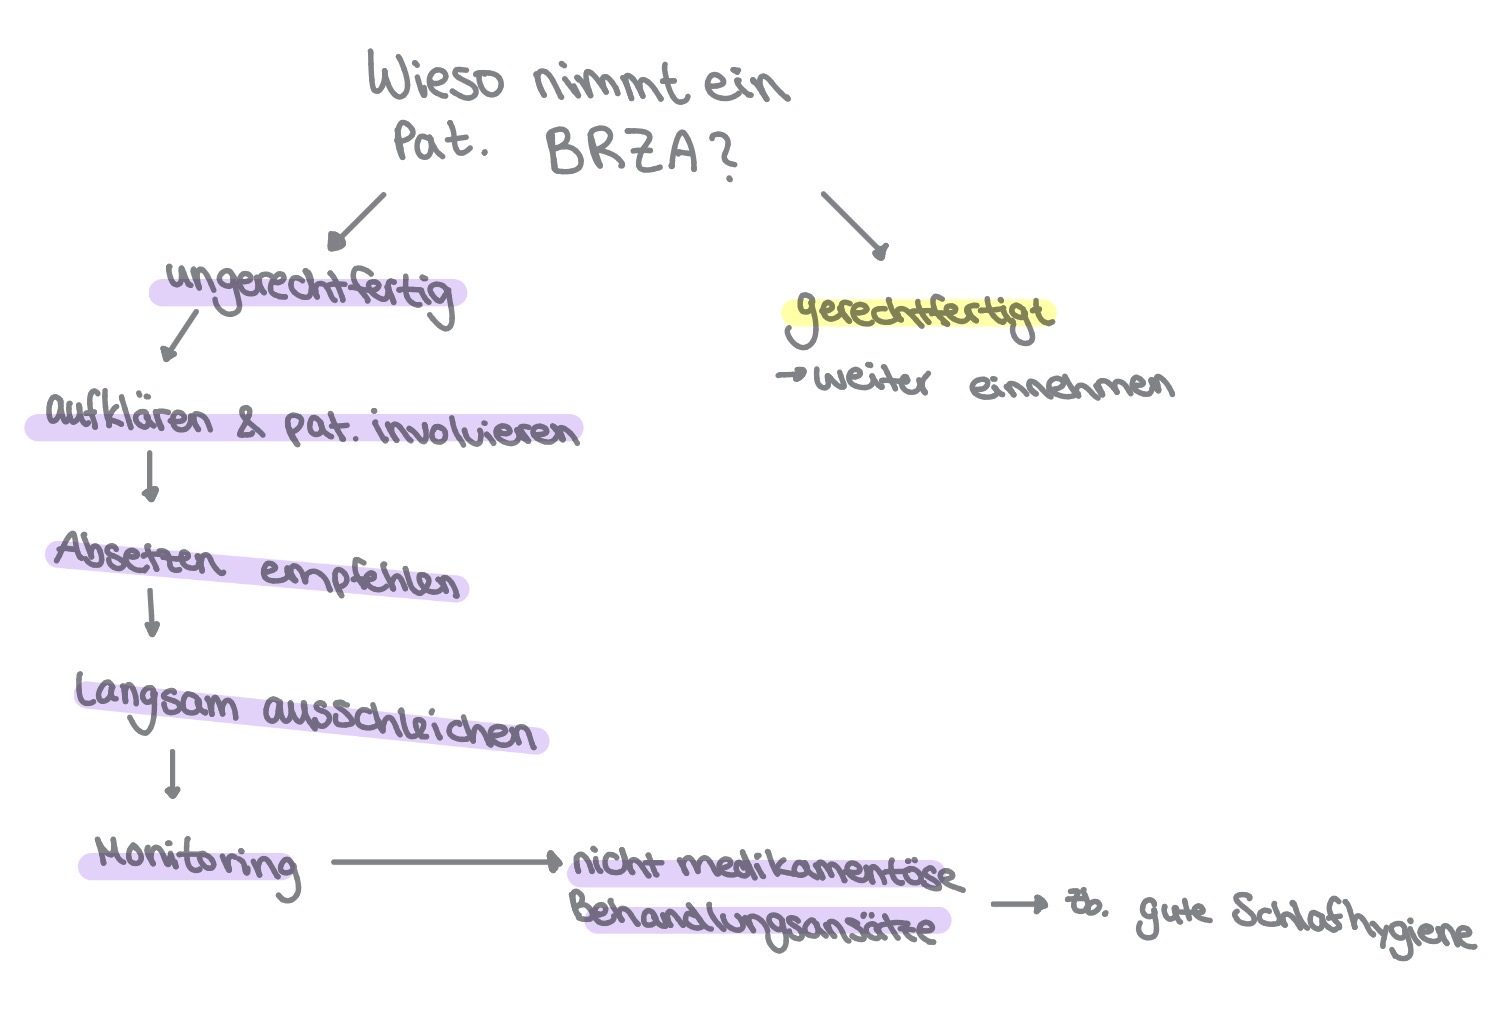 Wieso nimmt ein
Pat. BRZA?
ungerechtfertig
gerechtfertigt
→ weiter einnehmen
aufklären & pat. involvieren
Absetzen empfehlen
Langsam ausschleichen
Monitoring
nicht medikamentöse
Behandlungsansätze
zb. gute Schlafhygiene